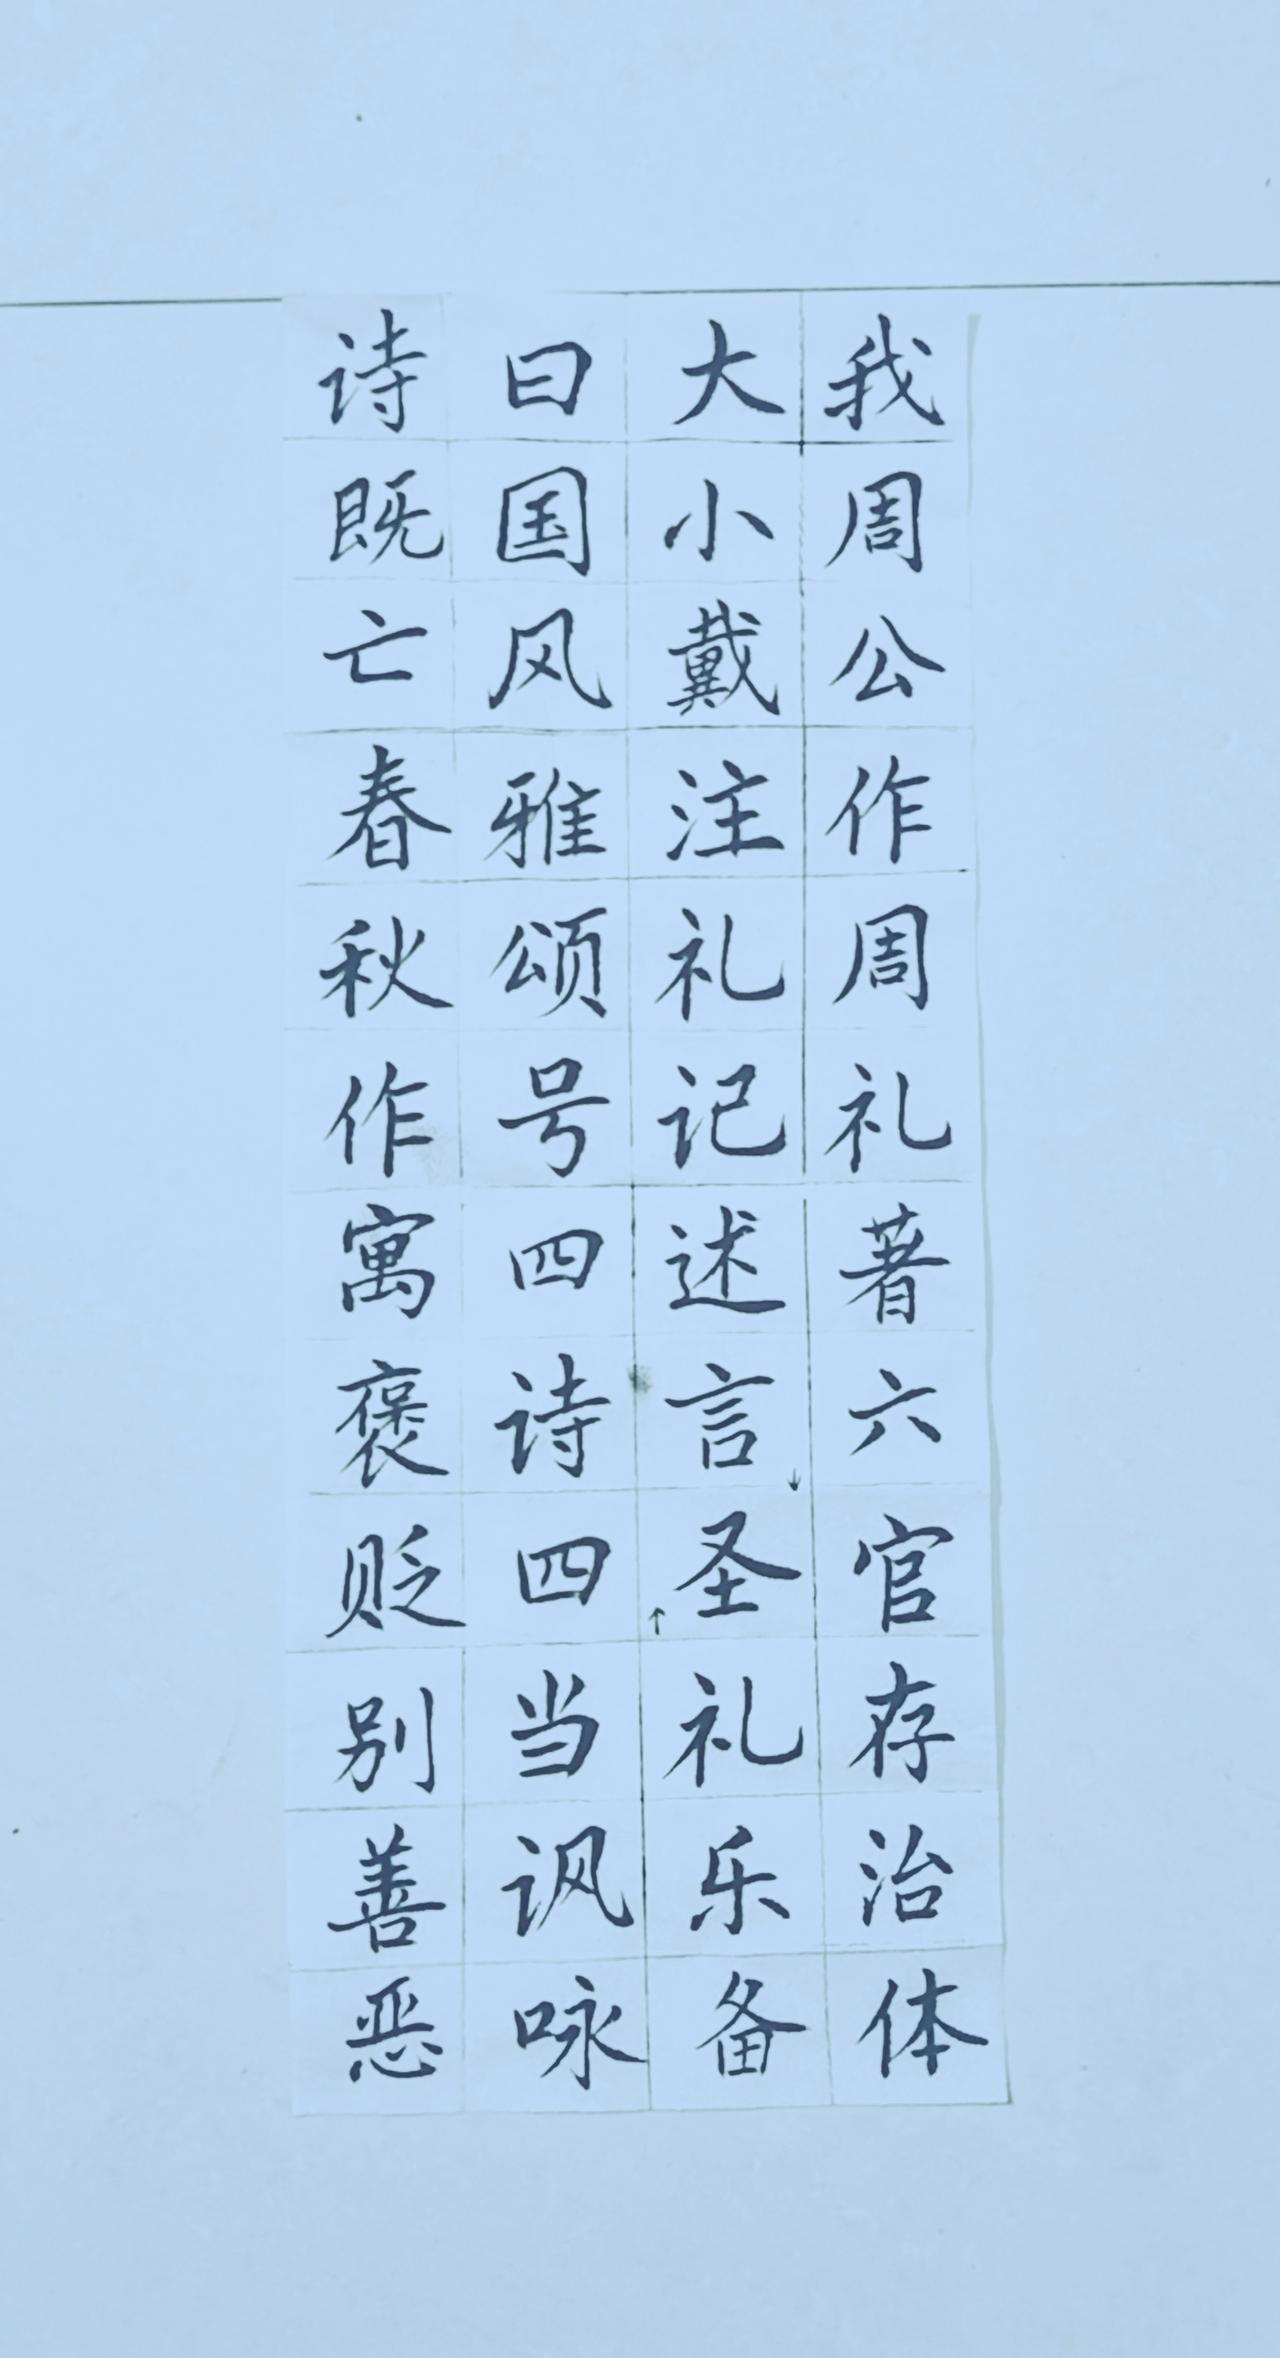 我周公作周礼著六官存治体
大小戴注礼记述言圣礼乐备
曰国风雅颂号四诗四当讽咏
诗既亡春秋作寓褒贬别善恶